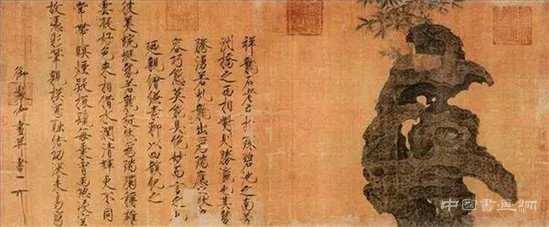 祥龍石者立於環碧池之南芳
洲橋之西相對則勝瀛也其勢
騰湧若虬龍出為瑞應之狀奇
容巧態莫能具絕妙而言之也
廼親繪縑素聊以四韻紀之
彼美蜿蜒勢若龍挺然為瑞獨稱雄
雲凝好色來相借水潤清輝更不同
常帶暝煙疑振鬣每乘宵雨恐凌空
故憑彩筆親模寫融結功深未易窮
御製御畫並書
中國書畫網